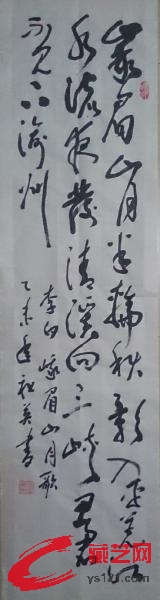 峩眉山月半輪秋影入平羌江
水流夜發清溪向三峡思君
不见下渝州
李白峨眉山月歌
乙未年英書
藏艺网